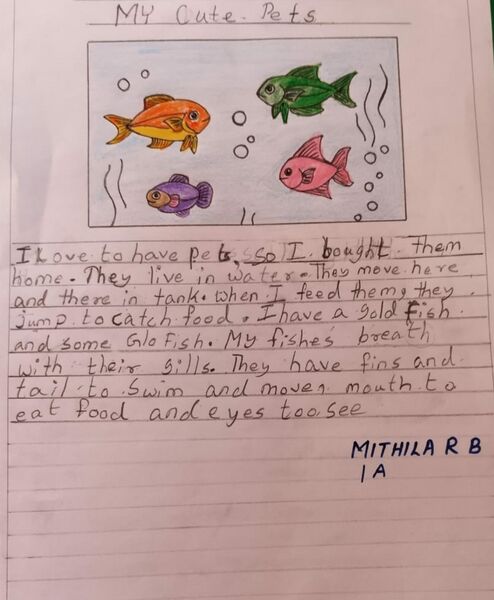 MY Cute Pets
I Love to have pets, so I bought them
home. They live in water. They move here
and there in tank. when I feed them, they
jump to catch food. I have a gold fish
and some Glo Fish. My fishes breath
with their gills. They have fins and
tail to swim and moves mouth to
eat food and eyes too see
MITHILA R B
1 A